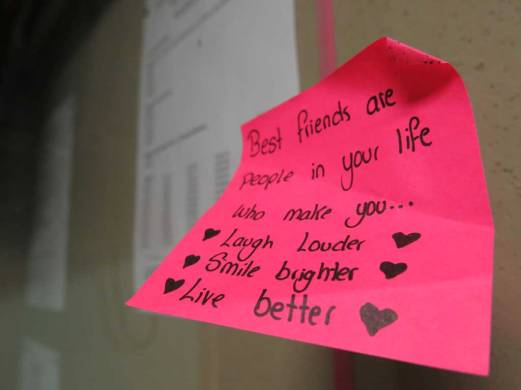 Best friends are
People in your life
who make you...
♥ Laugh Louder ♥
♥ Smile brighter ♥
♥ Live better ♥